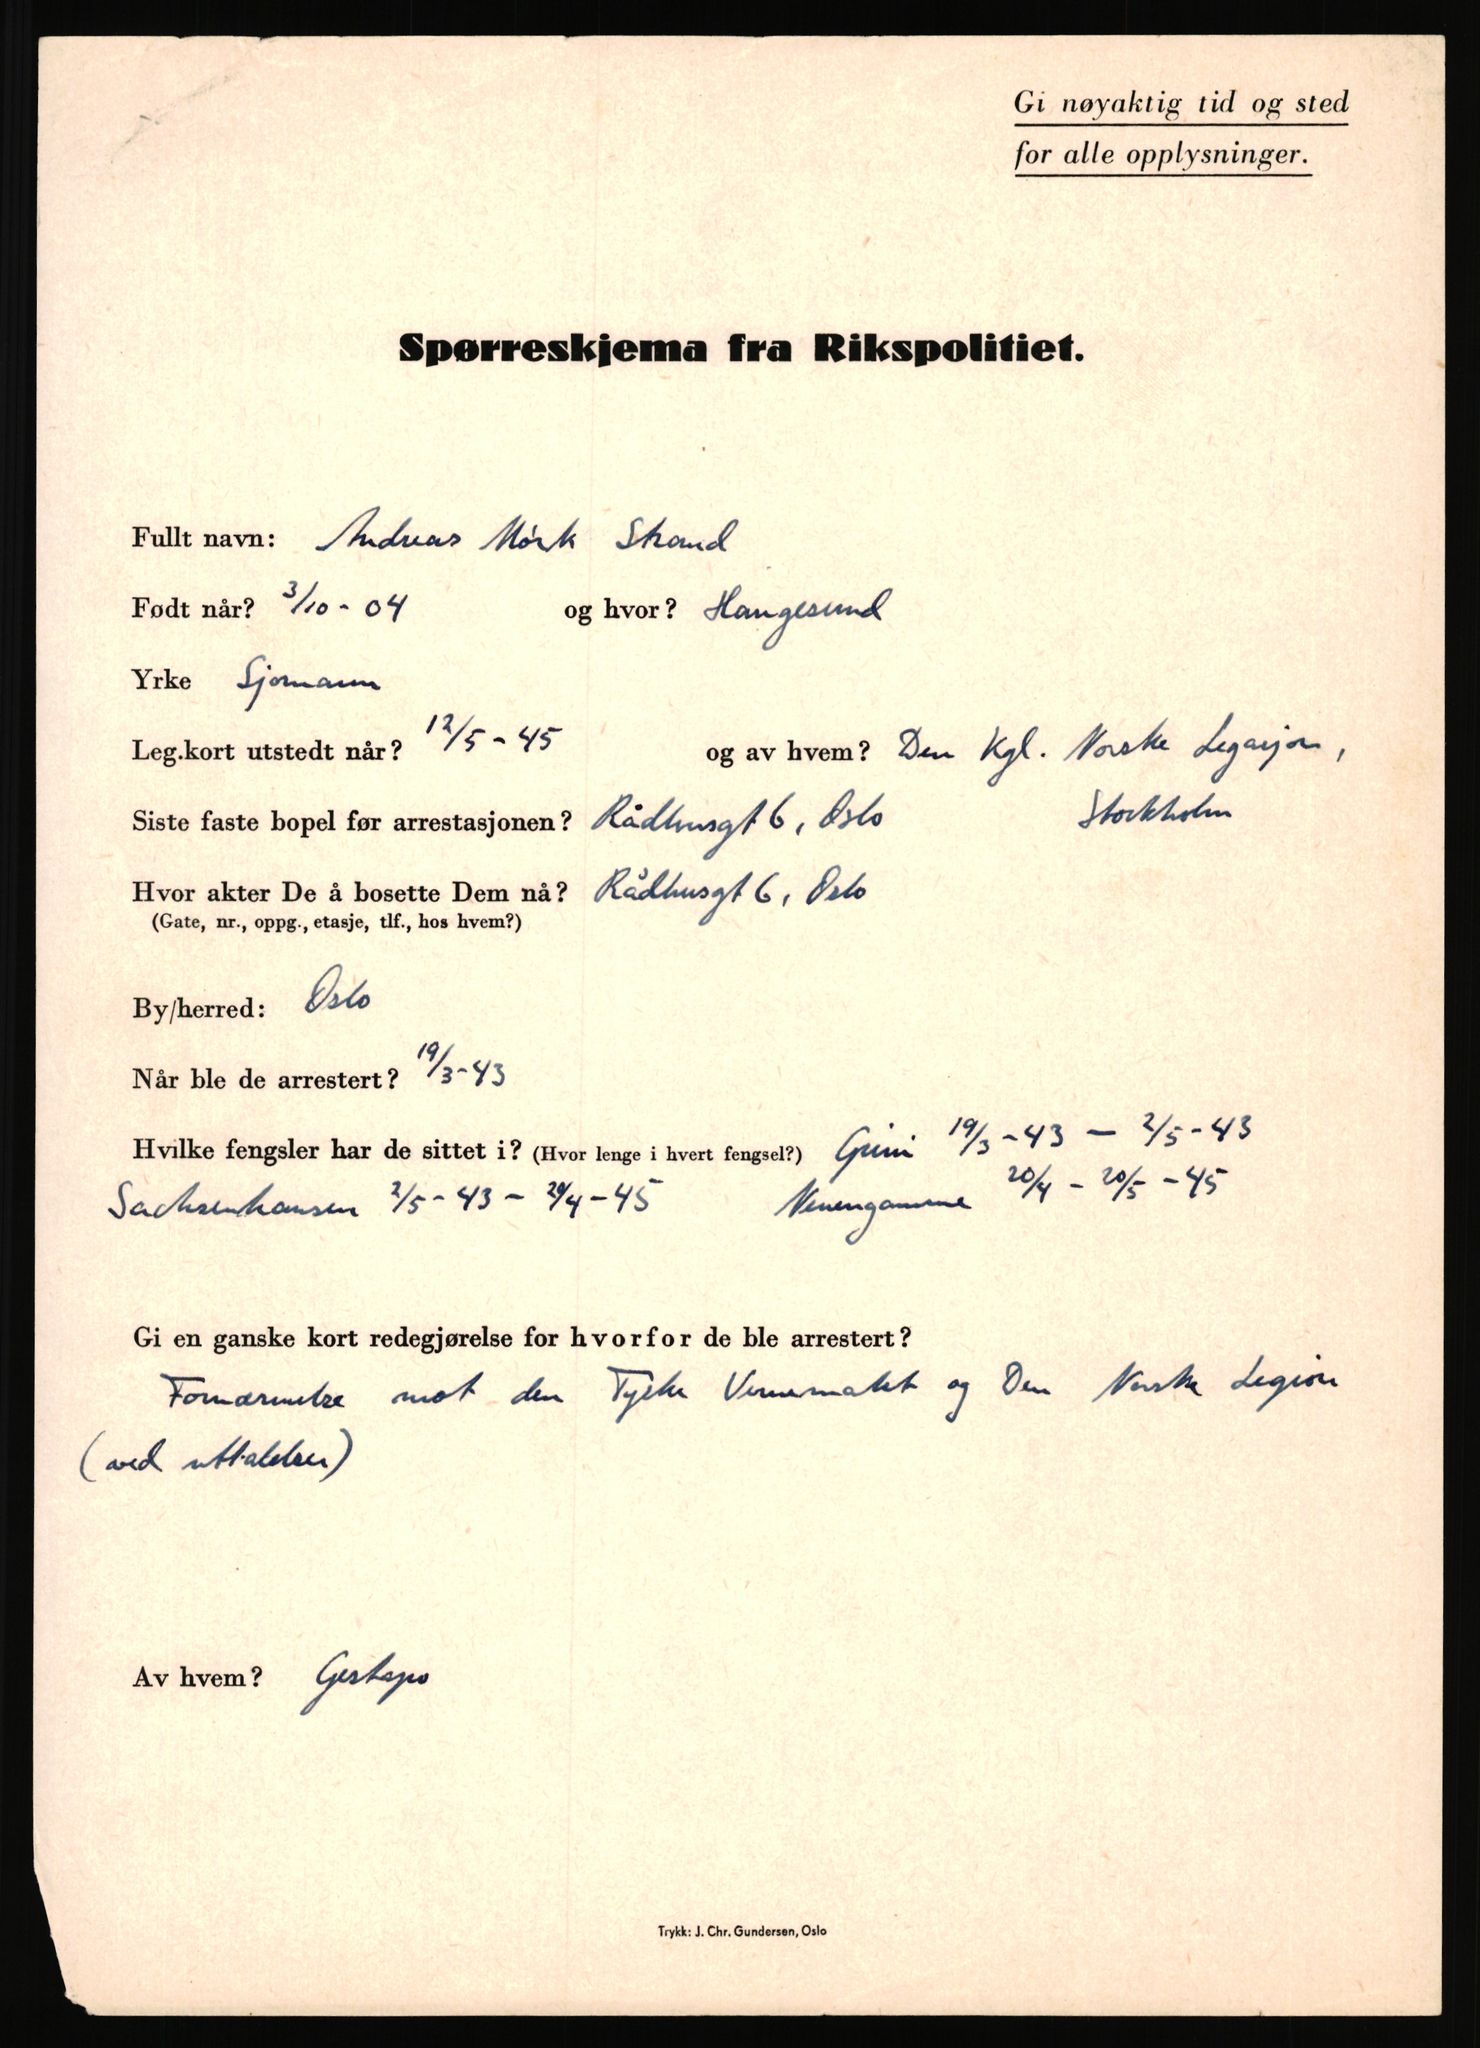 Gi nøyaktig tid og sted
for alle opplysninger.
Spørreskjema fra Rikspolitiet.
Fullt navn: Andreas Mørk Strand
Født når? 3/10 - 04 og hvor? Haugesund
Yrke Sjømann
Leg.kort utstedt når? 12/5 - 45 og av hvem? Den Kgl. Norske Legasjon,
Siste faste bopel før arrestasjonen? Rådhusgt 6, Oslo Stockholm
Hvor akter De å bosette Dem nå? Rådhusgt 6, Oslo
(Gate, nr., oppg., etasje, tlf., hos hvem?)
By/herred: Oslo
Når ble de arrestert? 19/3 - 43
Hvilke fengsler har de sittet i? (Hvor lenge i hvert fengsel?) Grini 19/3 - 43 — 2/5 - 43
Sachsenhausen 2/5 - 43 - 20/4 - 45 Neuengamme 20/4 - 20/5 - 45
Gi en ganske kort redegjørelse for hvorfor de ble arrestert?
Fornærmelse mot den Tyske Vernemakt og Den Norske Legion
(ved uttalelser)
Av hvem? Gestapo
Trykk: J. Chr. Gundersen, Oslo